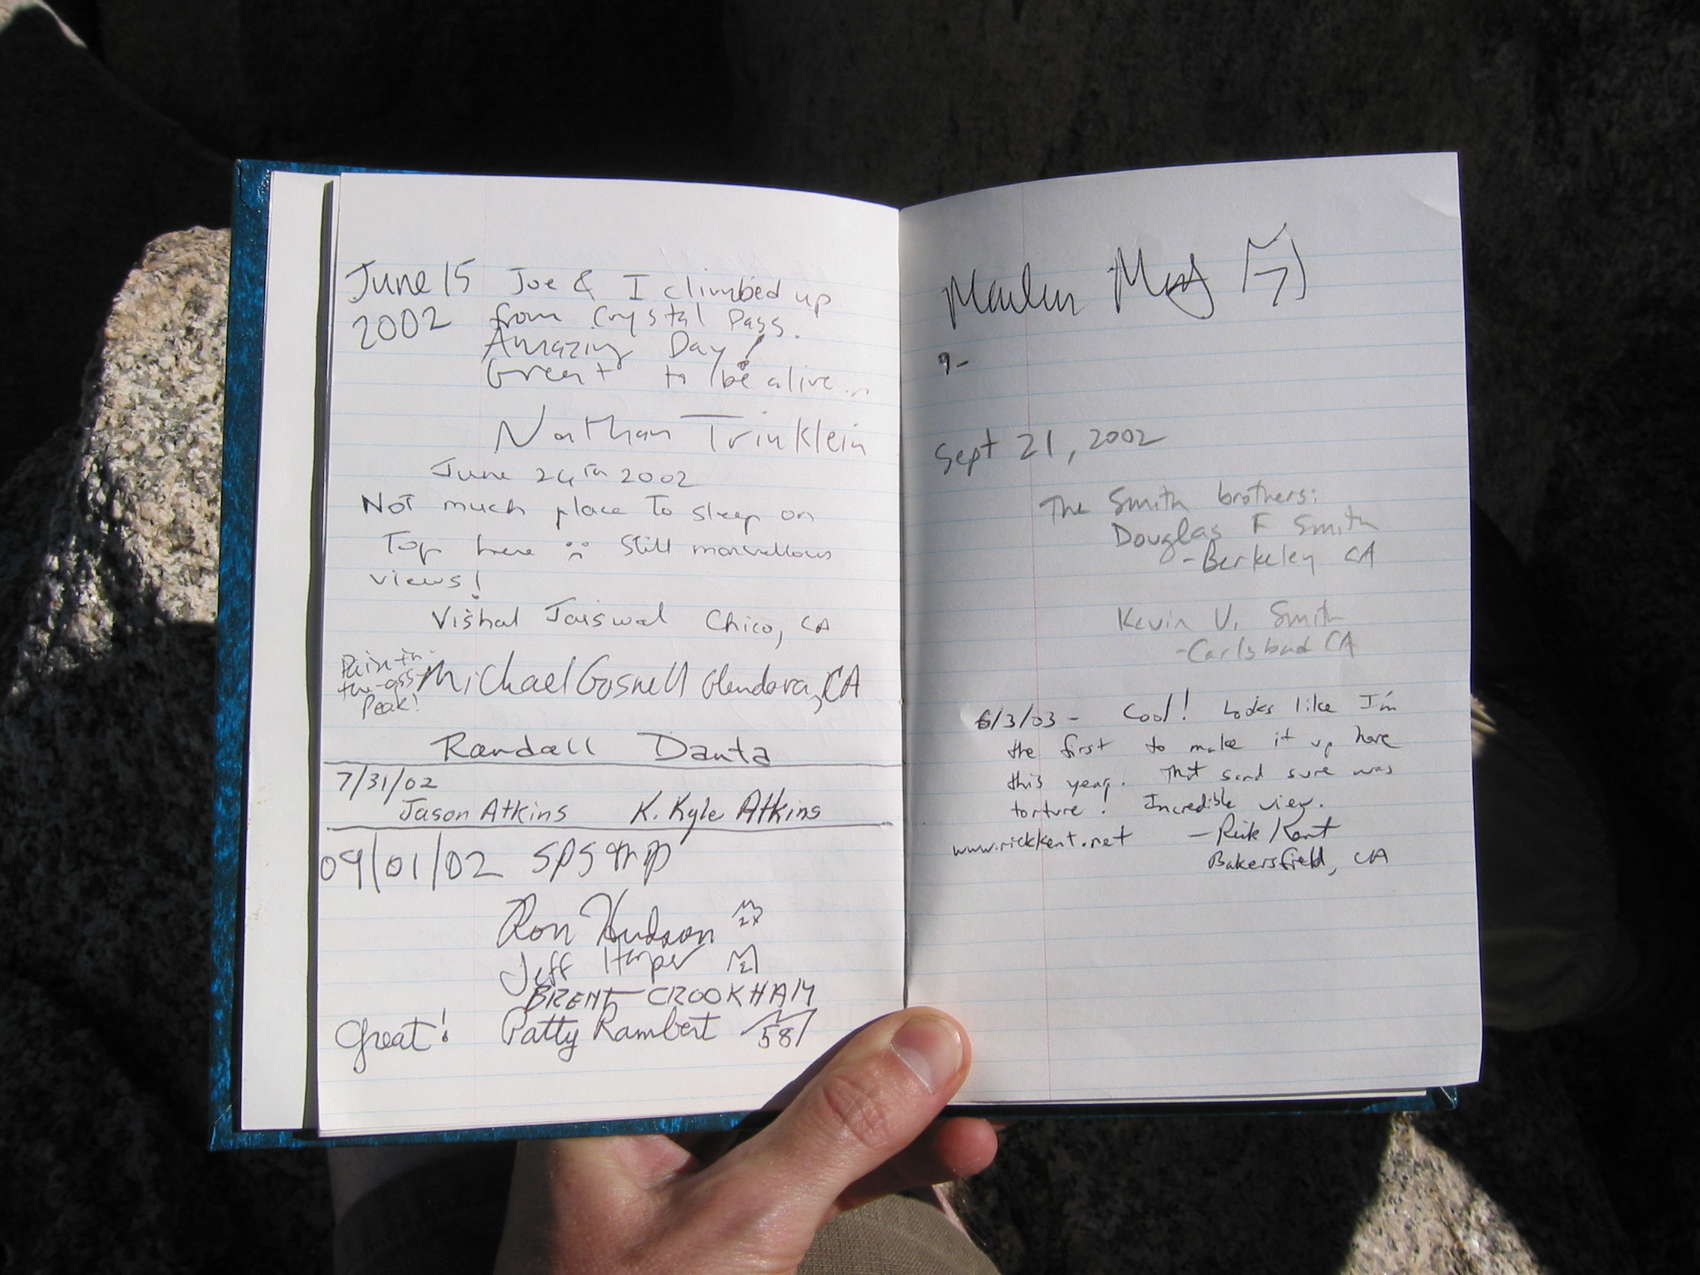 June 15 Joe & I climbed up
2002 from Crystal Pass.
Amazing Day!
Great to be alive...
Nathan Trinklein
June 24th 2002
Not much place to sleep on
Top here :( Still marvellous
views!
Vishal Jaiswal Chico, CA
Pain-in-
the-ass
Peak!
Michael Gosnell Glendora, CA
Randall Danta
7/31/02
Jason Atkins K. Kyle Atkins
09/01/02 SPS trip
Ron Hudson 2x
Jeff Harper
BRENT CROOKHAM
Great! Patty Rambert 58
7
9-
Sept 21, 2002
The Smith brothers:
Douglas F Smith
-Berkeley CA
Kevin V. Smith
-Carlsbad CA
6/3/03 - Cool! Looks like I'm
the first to make it up here
this year. That sand sure was
torture! Incredible view.
www.rickkent.net - Rick Kent
Bakersfield, CA